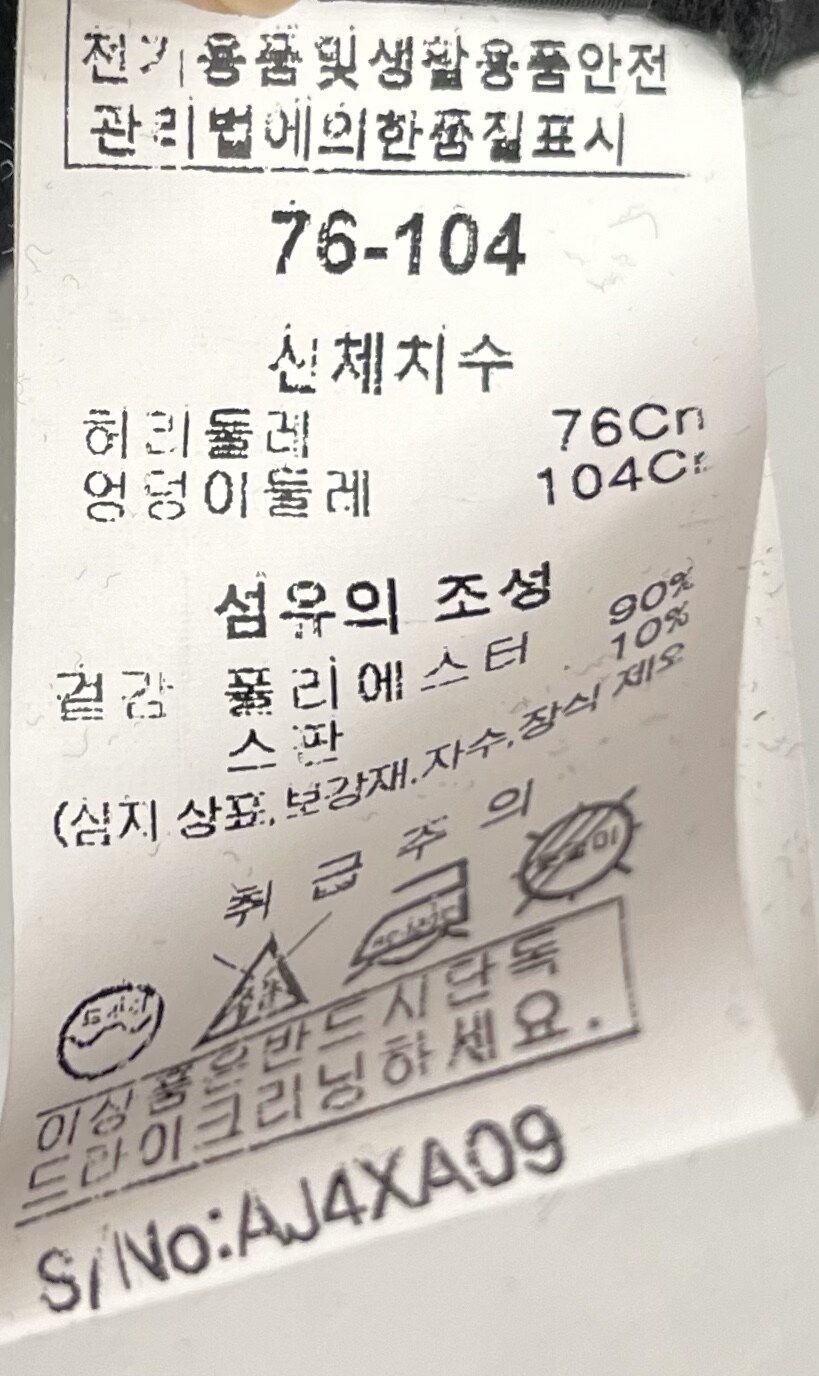 전기용품및생활용품안전
관리법에의한품질표시
76-104
신체치수
허리둘레 76Cm
엉덩이둘레 104Cm
섬유의 조성
겉감 폴리에스터 90%
스판 10%
(심지 상표,보강재.자수.장식 제외
취급주의
드라이
이상품은반드시단독
드라이크리닝하세요.
S/No:AJ4XA09